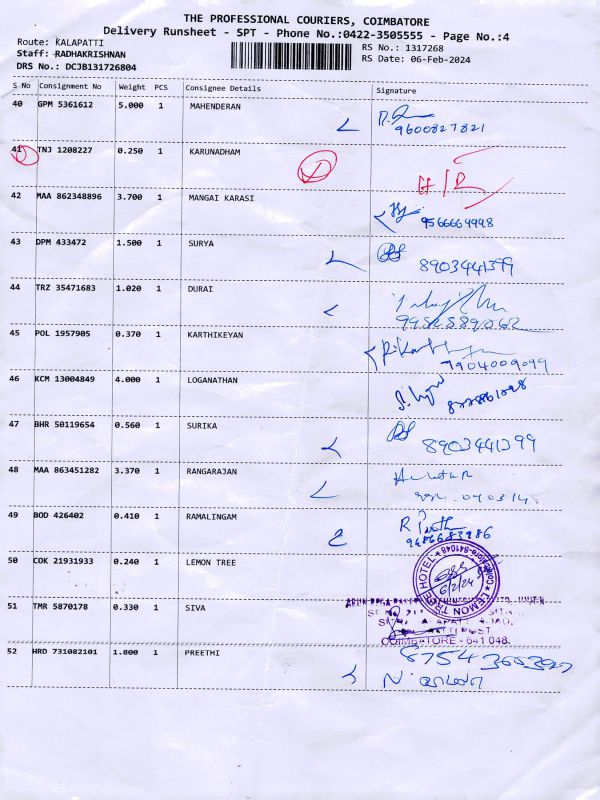 THE PROFESSIONAL COURIERS, COIMBATORE
Delivery Runsheet - SPT - Phone No.:0422-3505555 - Page No.:4
Route: KALAPATTI RS No.: 1317268
Staff: RADHAKRISHNAN RS Date: 06-Feb-2024
DRS No.: DCJB131726804
S No Consignment No Weight PCS Consignee Details Signature
40 GPM 5361612 5.000 1 MAHENDERAN
9600827821
41 TNJ 1208227 0.250 1 KARUNADHAM
42 MAA 862348896 3.700 1 MANGAI KARASI
9566664998
43 DPM 433472 1.500 1 SURYA
8903441399
44 TRZ 35471683 1.020 1 DURAI
45 POL 1957905 0.370 1 KARTHIKEYAN
7904009099
46 KCM 13004849 4.000 1 LOGANATHAN
47 BHR 50119654 0.560 1 SURIKA
8903441399
48 MAA 863451282 3.370 1 RANGARAJAN
49 BOD 426402 0.410 1 RAMALINGAM
50 COK 21931933 0.240 1 LEMON TREE
LEMON TREE HOTEL
6/2/24
51 TMR 5870178 0.330 1 SIVA
COIMBATORE - 641 048.
52 HRD 731082101 1.800 1 PREETHI